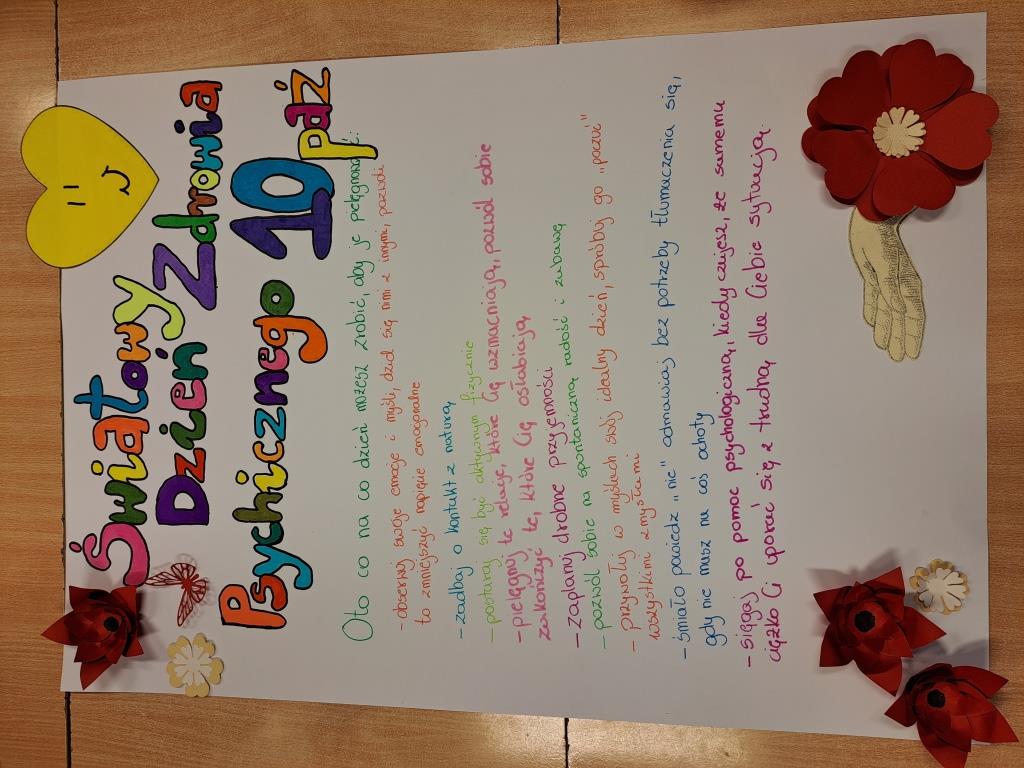 Światowy
Dzień Zdrowia
Psychicznego 10 paź
Oto co na co dzień możesz zrobić, aby je pielęgnować:
- obserwuj swoje emocje i myśli, dziel się nimi z innymi, pozwoli
to zmniejszyć napięcie emocjonalne
- zadbaj o kontakt z naturą
- postaraj się być aktywnym fizycznie
- pielęgnuj te relacje, które Cię wzmacniają, pozwól sobie
zakończyć te, które Cię osłabiają
- zaplanuj drobne przyjemności
- pozwól sobie na spontaniczną radość i zabawę
- przywołuj w myślach swój idealny dzień, spróbuj go "poczuć"
wszystkimi zmysłami
- śmiało powiedz "nie" odmawiaj bez potrzeby tłumaczenia się,
gdy nie masz na coś ochoty
- sięgaj po pomoc psychologiczną, kiedy czujesz, że samemu
ciężko Ci uporać się z trudną dla Ciebie sytuacją.